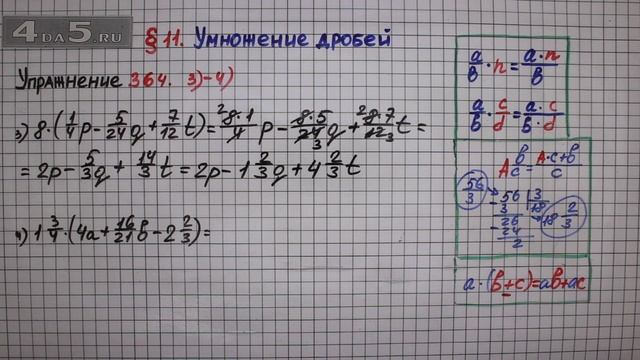 4DA5.RU
§ 11. Умножение дробей
Упражнение 364. 3)-4)
3) 8·(1/4 p - 5/24 q + 7/12 t) = 8·1/4 p - 8·5/24 q + 8·7/12 t =
= 2p - 5/3 q + 14/3 t = 2p - 1 2/3 q + 4 2/3 t
4) 1 3/4·(4a + 16/21 b - 2 2/3) =
a/b · n = a·n/b
a/b · c/d = a·c/b·d
A b/c = A·c+b/c
56/3
56 3
3 18
26
24
2
18 2/3
a·(b+c)=ab+ac